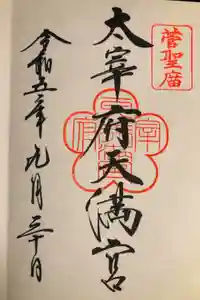 菅聖廟
太宰府天満宮
令和五年九月三十日